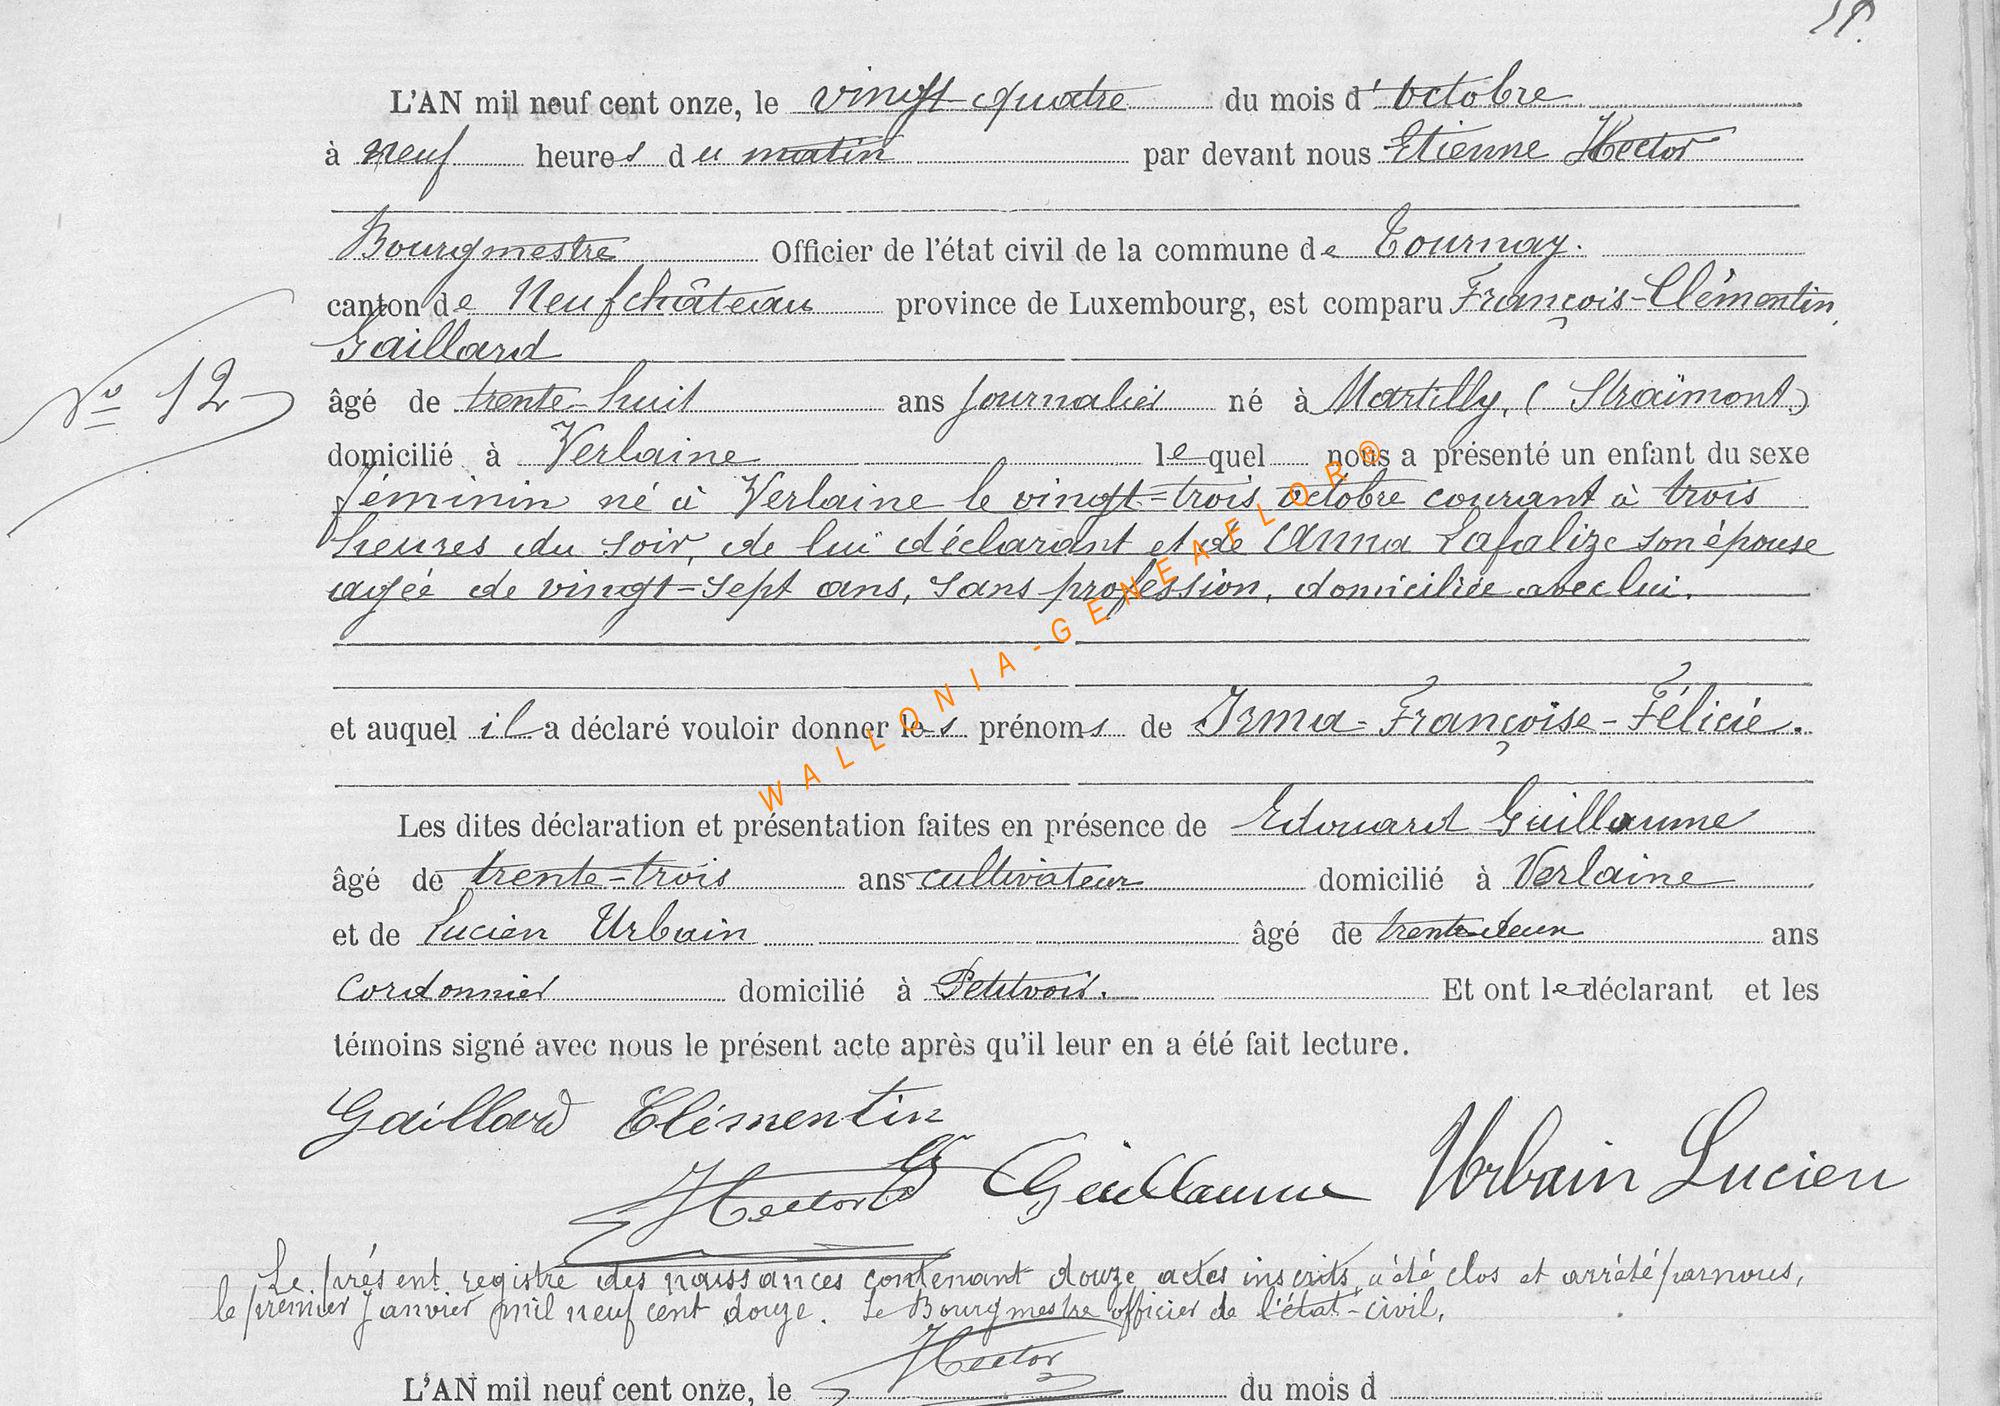 L'AN mil neuf cent onze, le vingt-quatre du mois d'octobre
à neuf heures du matin par devant nous Etienne Hector
Bourgmestre Officier de l'état civil de la commune de Tournay.
canton de Neufchâteau province de Luxembourg, est comparu François-Clémentin,
Gaillard
No 12
âgé de trente-huit ans journalier né à Martilly, (Straimont)
domicilié à Verlaine lequel nous a présenté un enfant du sexe
féminin né à Verlaine le vingt-trois octobre courant à trois
heures du soir, de lui déclarant et de Anna Lafalize son épouse
agée de vingt-sept ans, sans profession, domiciliée avec lui.
et auquel il a déclaré vouloir donner les prénoms de Irma-Françoise-Félicie.
Les dites déclaration et présentation faites en présence de Edouard Guillaume
âgé de trente-trois ans cultivateur domicilié à Verlaine
et de Lucien Urbain âgé de trente-deux ans
cordonnier domicilié à Petitvoir. Et ont le déclarant et les
témoins signé avec nous le présent acte après qu'il leur en a été fait lecture.
Gaillard Clémentin
Hector Guillaume Urbain Lucien
Le présent registre des naissances contenant douze actes inscrits, a été clos et arrêté par nous,
le premier Janvier mil neuf cent douze. Le Bourgmestre officier de l'état-civil,
Hector
L'AN mil neuf cent onze, le du mois d
WALLONIA-GENEAFLOR®